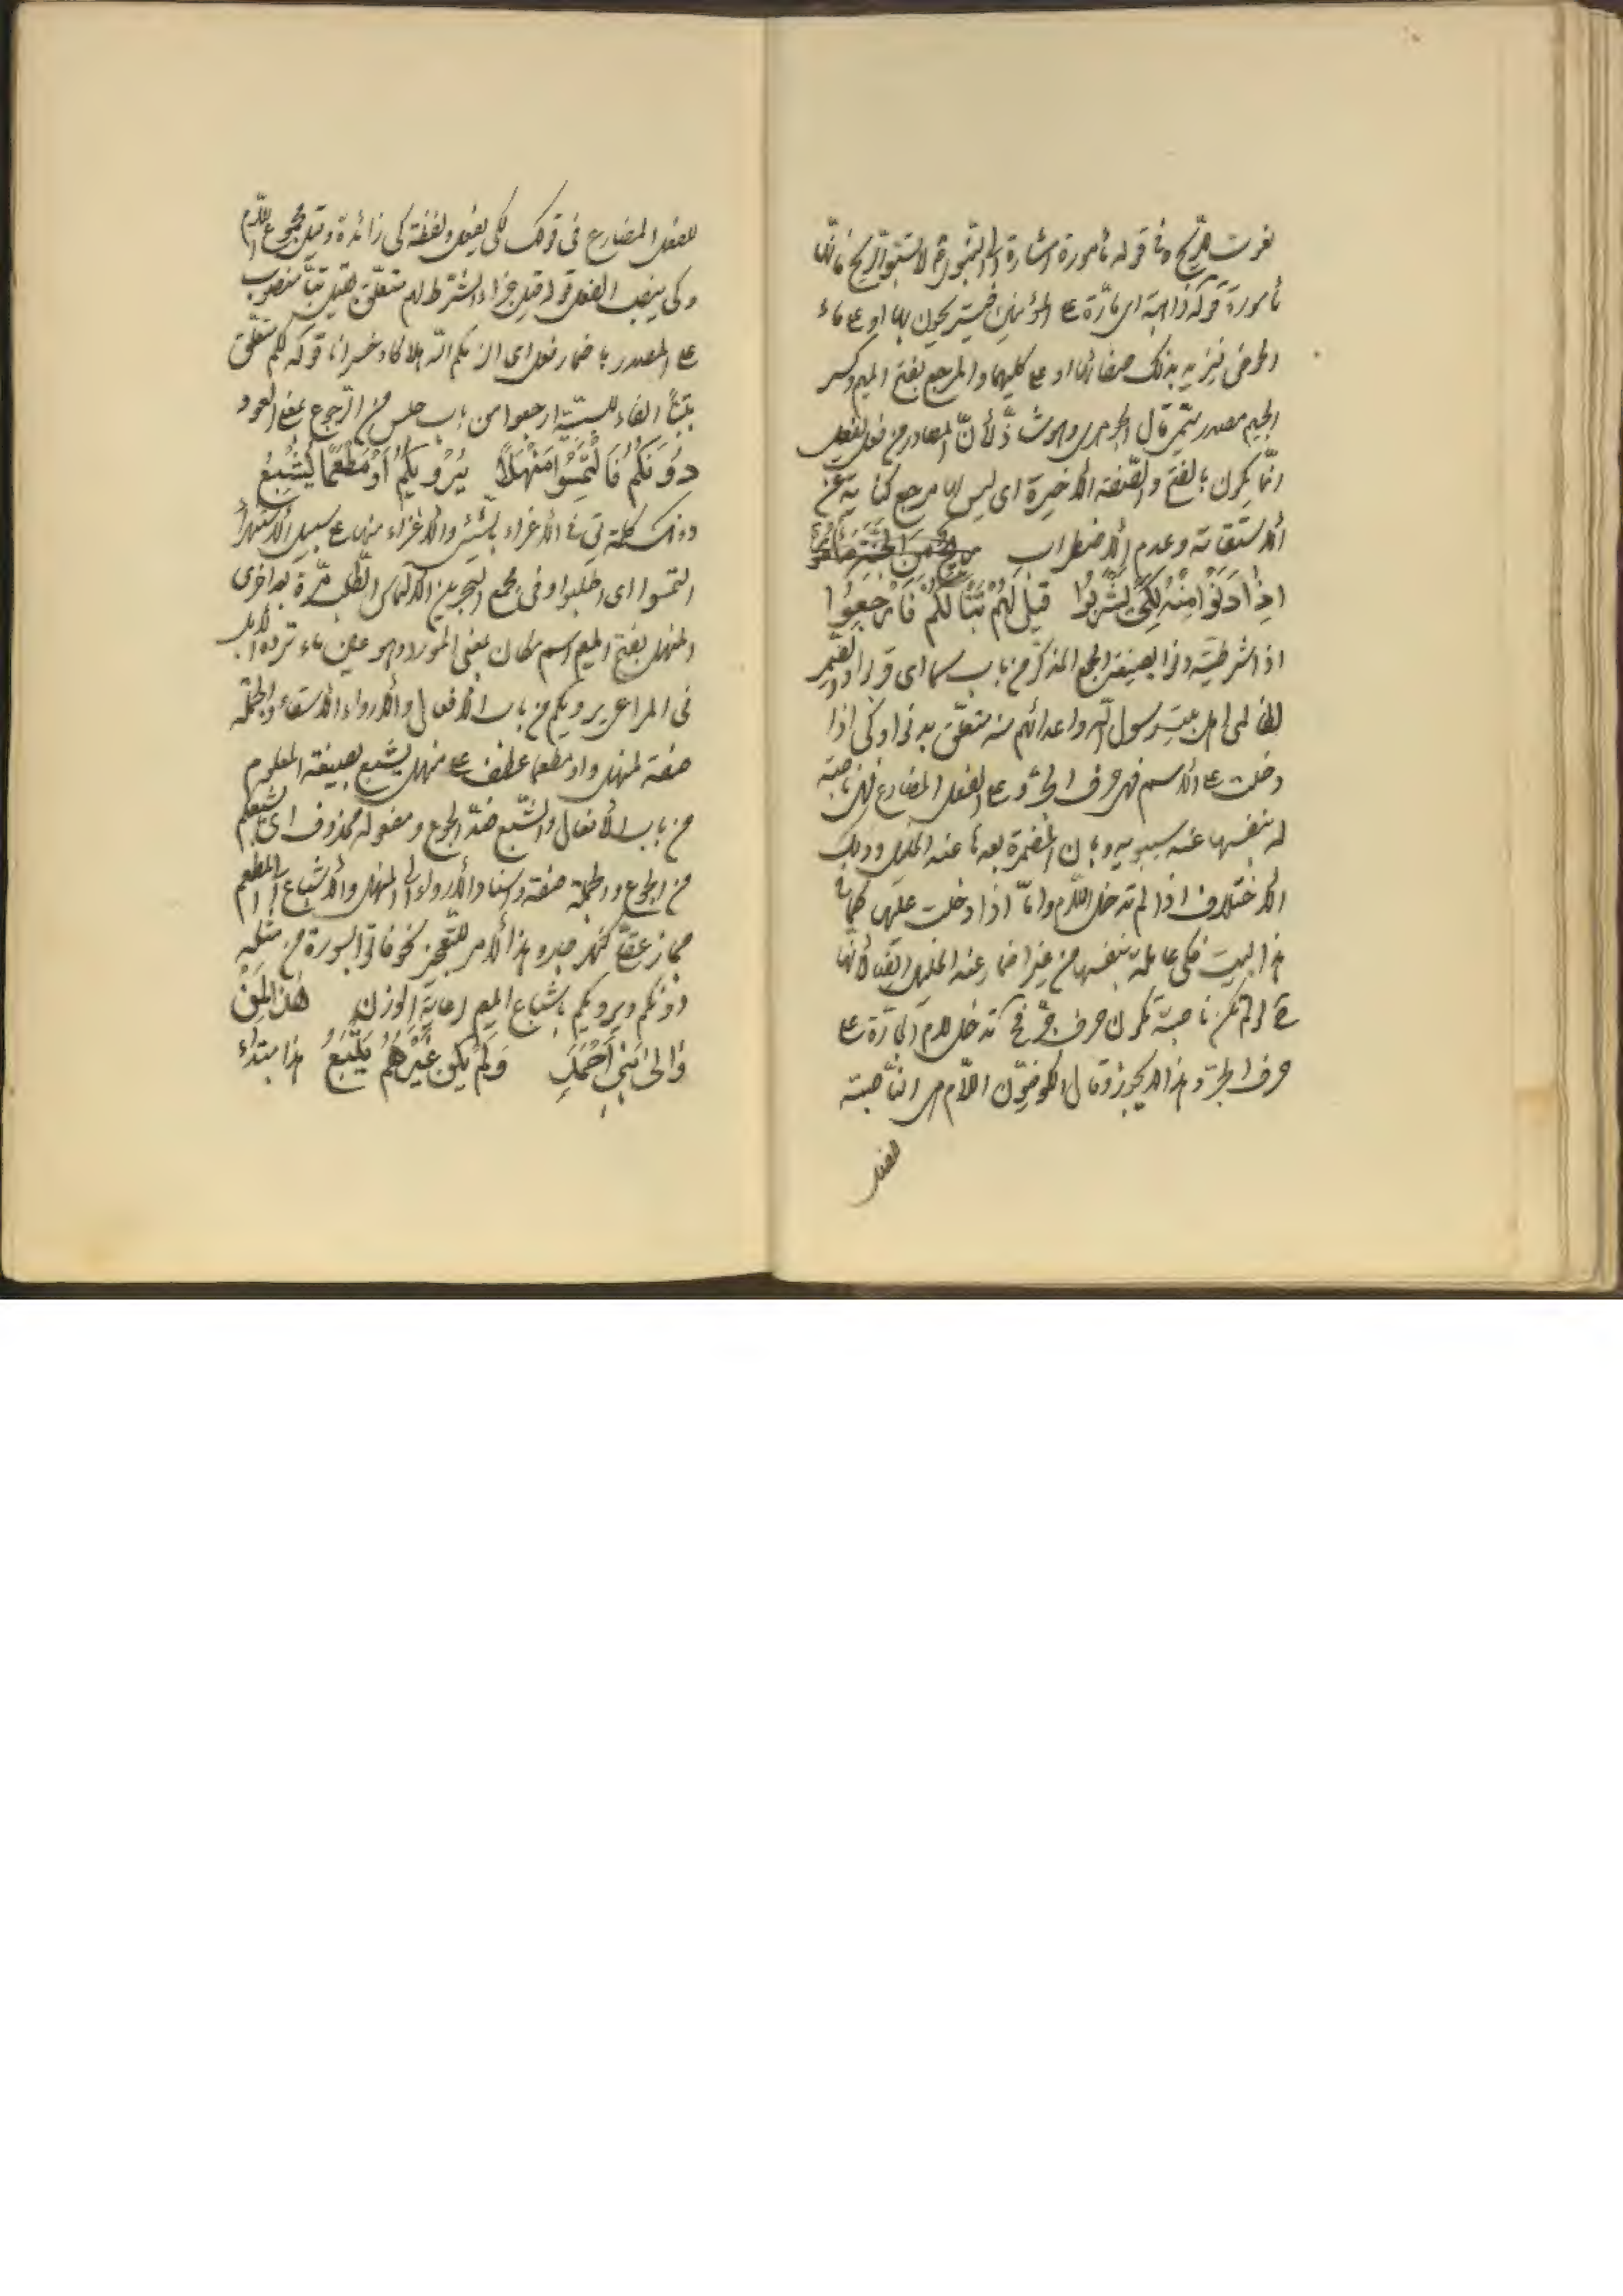 نعوت للريح وفى قوله مأمورة اشارة الى لا تسبوا الريح فانها
مأمورة قوله ذاهبة اى مارة على المؤمنين او على ماء
الحوض فيزيد بذلك صفائها او على كليهما والمرجع بفتح الميم وكسر
الجيم مصدر ميمى قال الجوهرى وهو شاذ لأن المصادر من فعل يفعل
انما يكون بالفتح والصفة الاخيرة اى ليس لها مرجع كناية عن
الاستقامة وعدم الاضطراب
اِذا دَنَوْا مِنْهُ لِكَىْ يَشْرَبُوا قيلَ لَهُمْ تَبًّا لَكُمْ فَارْجِعُوا
اذا شرطية دنوا بصيغة الجمع المذكر من باب سما اى قربوا والضمير
لظالمى اهل بيت رسول الله واعدائهم منه متعلق بدنوا وكى اذا
دخلت على الاسم فهى حرف الجر وعلى الفعل المضارع فهى ناصبة
له بنفسها عند سيبويه وبان المضمرة بعدها عند الخليل وذلك
الاختلاف اذا لم تدخل اللام واما اذا دخلت عليها كما فى
هذا البيت فكى عاملة بنفسها من غير اضمار عند الخليل ايضا لانها
ح لو لم تكن ناصبة تكون حرف جر فح تدخل لام الجارة على
حرف الجر وهذا لا يجوز وقال الكوفيون اللام هى الناصبة
للفعل
للفعل المضارع فى قولك لكى يفعل ولفظة كى زائدة وقيل مجموع اللام
وكى ينصب الفعل قوله قيل جزاء الشرط لهم متعلق بقيل تبا منصوب
على المصدر باضمار فعل اى الزمكم الله هلاكا وخسرانا قوله لكم متعلق
بتبا الفاء للسببية ارجعوا من باب جلس من الرجوع بمعنى العود
دُونَكُمُ فَالْتَمِسُوا مَنْهَلاً يُرْويكُمُ اَوْ مَطْعَمًا يُشْبِعُ
دونك كلمة تق فى الاغراء بالشئ والاغراء منها على سبيل الاستهزاء
التمسوا اى اطلبوا وفى مجمع البحرين الالتماس الطلب مرة بعد اخرى
المنهل بفتح الميم اسم مكان بمعنى المورد وهو عين ماء ترده الابل
فى المراعى يرويكم من باب الافعال والارواء الاسقاء والجملة
صفة لمنهل واو مطعما عطف على منهل يشبع بصيغة المعلوم
من باب الأفعال والشبع ضد الجوع ومفعوله محذوف اى يشبعكم
من الجوع والجملة صفة واسناد الارواء الى المنهل والاشباع الى المطعم
مجاز عقلى كنهر جار وهذا الامر للتعجيز نحو فاتوا بسورة من مثله
دونكم ويرويكم باشباع الميم لرعاية الوزن هذا لِمَنْ
وَالى بَنى اَحْمَدَ وَلَمْ يَكُنْ غَيْرَهُمْ يَتْبَعُ هذا مبتداء